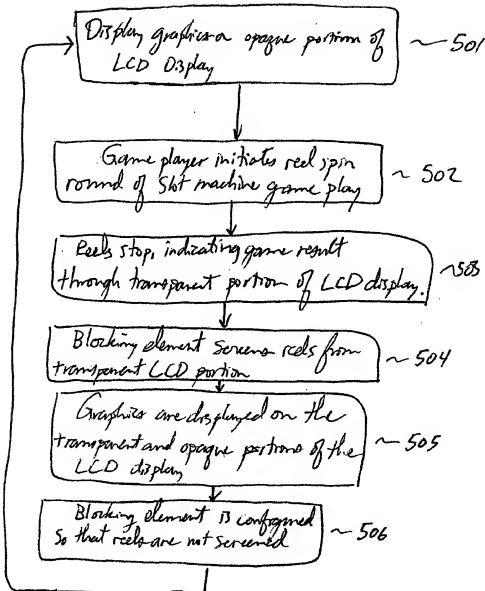 Display graphics on opaque portion of
LCD Display
~501
Game player initiates reel spin
round of slot machine game play
~502
Reels stop, indicating game result
through transparent portion of LCD display.
~503
Blocking element screens reels from
transparent LCD portion
~504
Graphics are displayed on the
transparent and opaque portions of the
LCD display
~505
Blocking element is configured
so that reels are not screened
~506